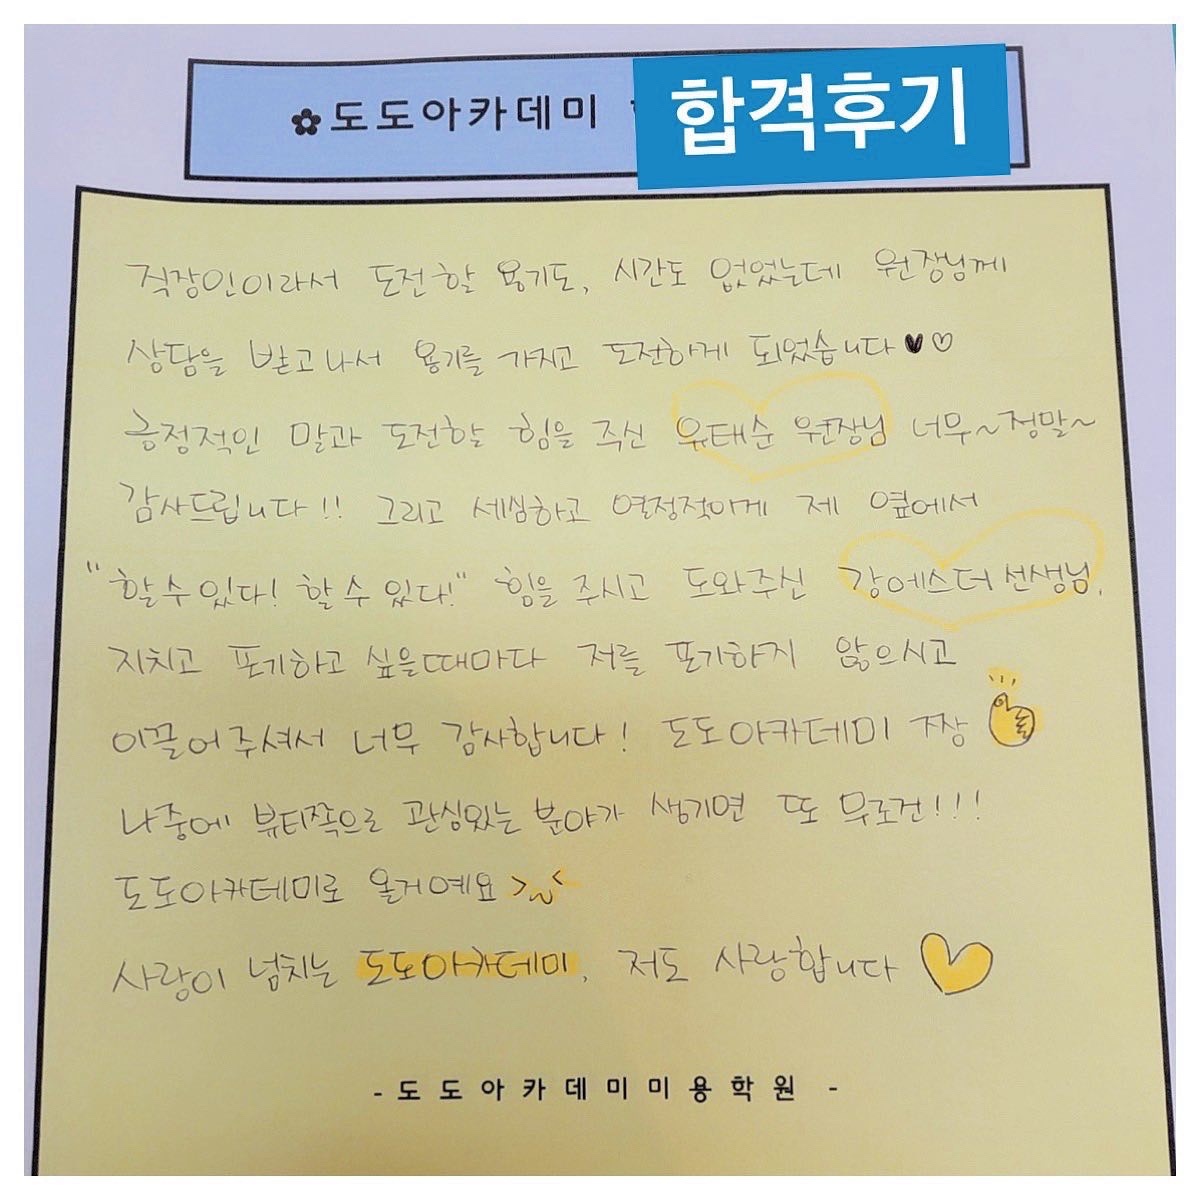 ✿도도아카데미
합격후기
직장인이라서 도전할 용기도, 시간도 없었는데 원장님께
상담을 받고나서 용기를 가지고 도전하게 되었습니다♥♡
긍정적인 말과 도전할 힘을 주신 유태순 원장님 너무~정말~
감사드립니다!! 그리고 세심하고 열정적이게 제 옆에서
"할수있다! 할수있다!" 힘을 주시고 도와주신 강에스더 선생님,
지치고 포기하고 싶을때마다 저를 포기하지 않으시고
이끌어주셔서 너무 감사합니다! 도도아카데미 짱
나중에 뷰티쪽으로 관심있는 분야가 생기면 또 무조건!!!
도도아카데미로 올거예요 >ω<
사랑이 넘치는 도도아카데미, 저도 사랑합니다
- 도도아카데미미용학원 -